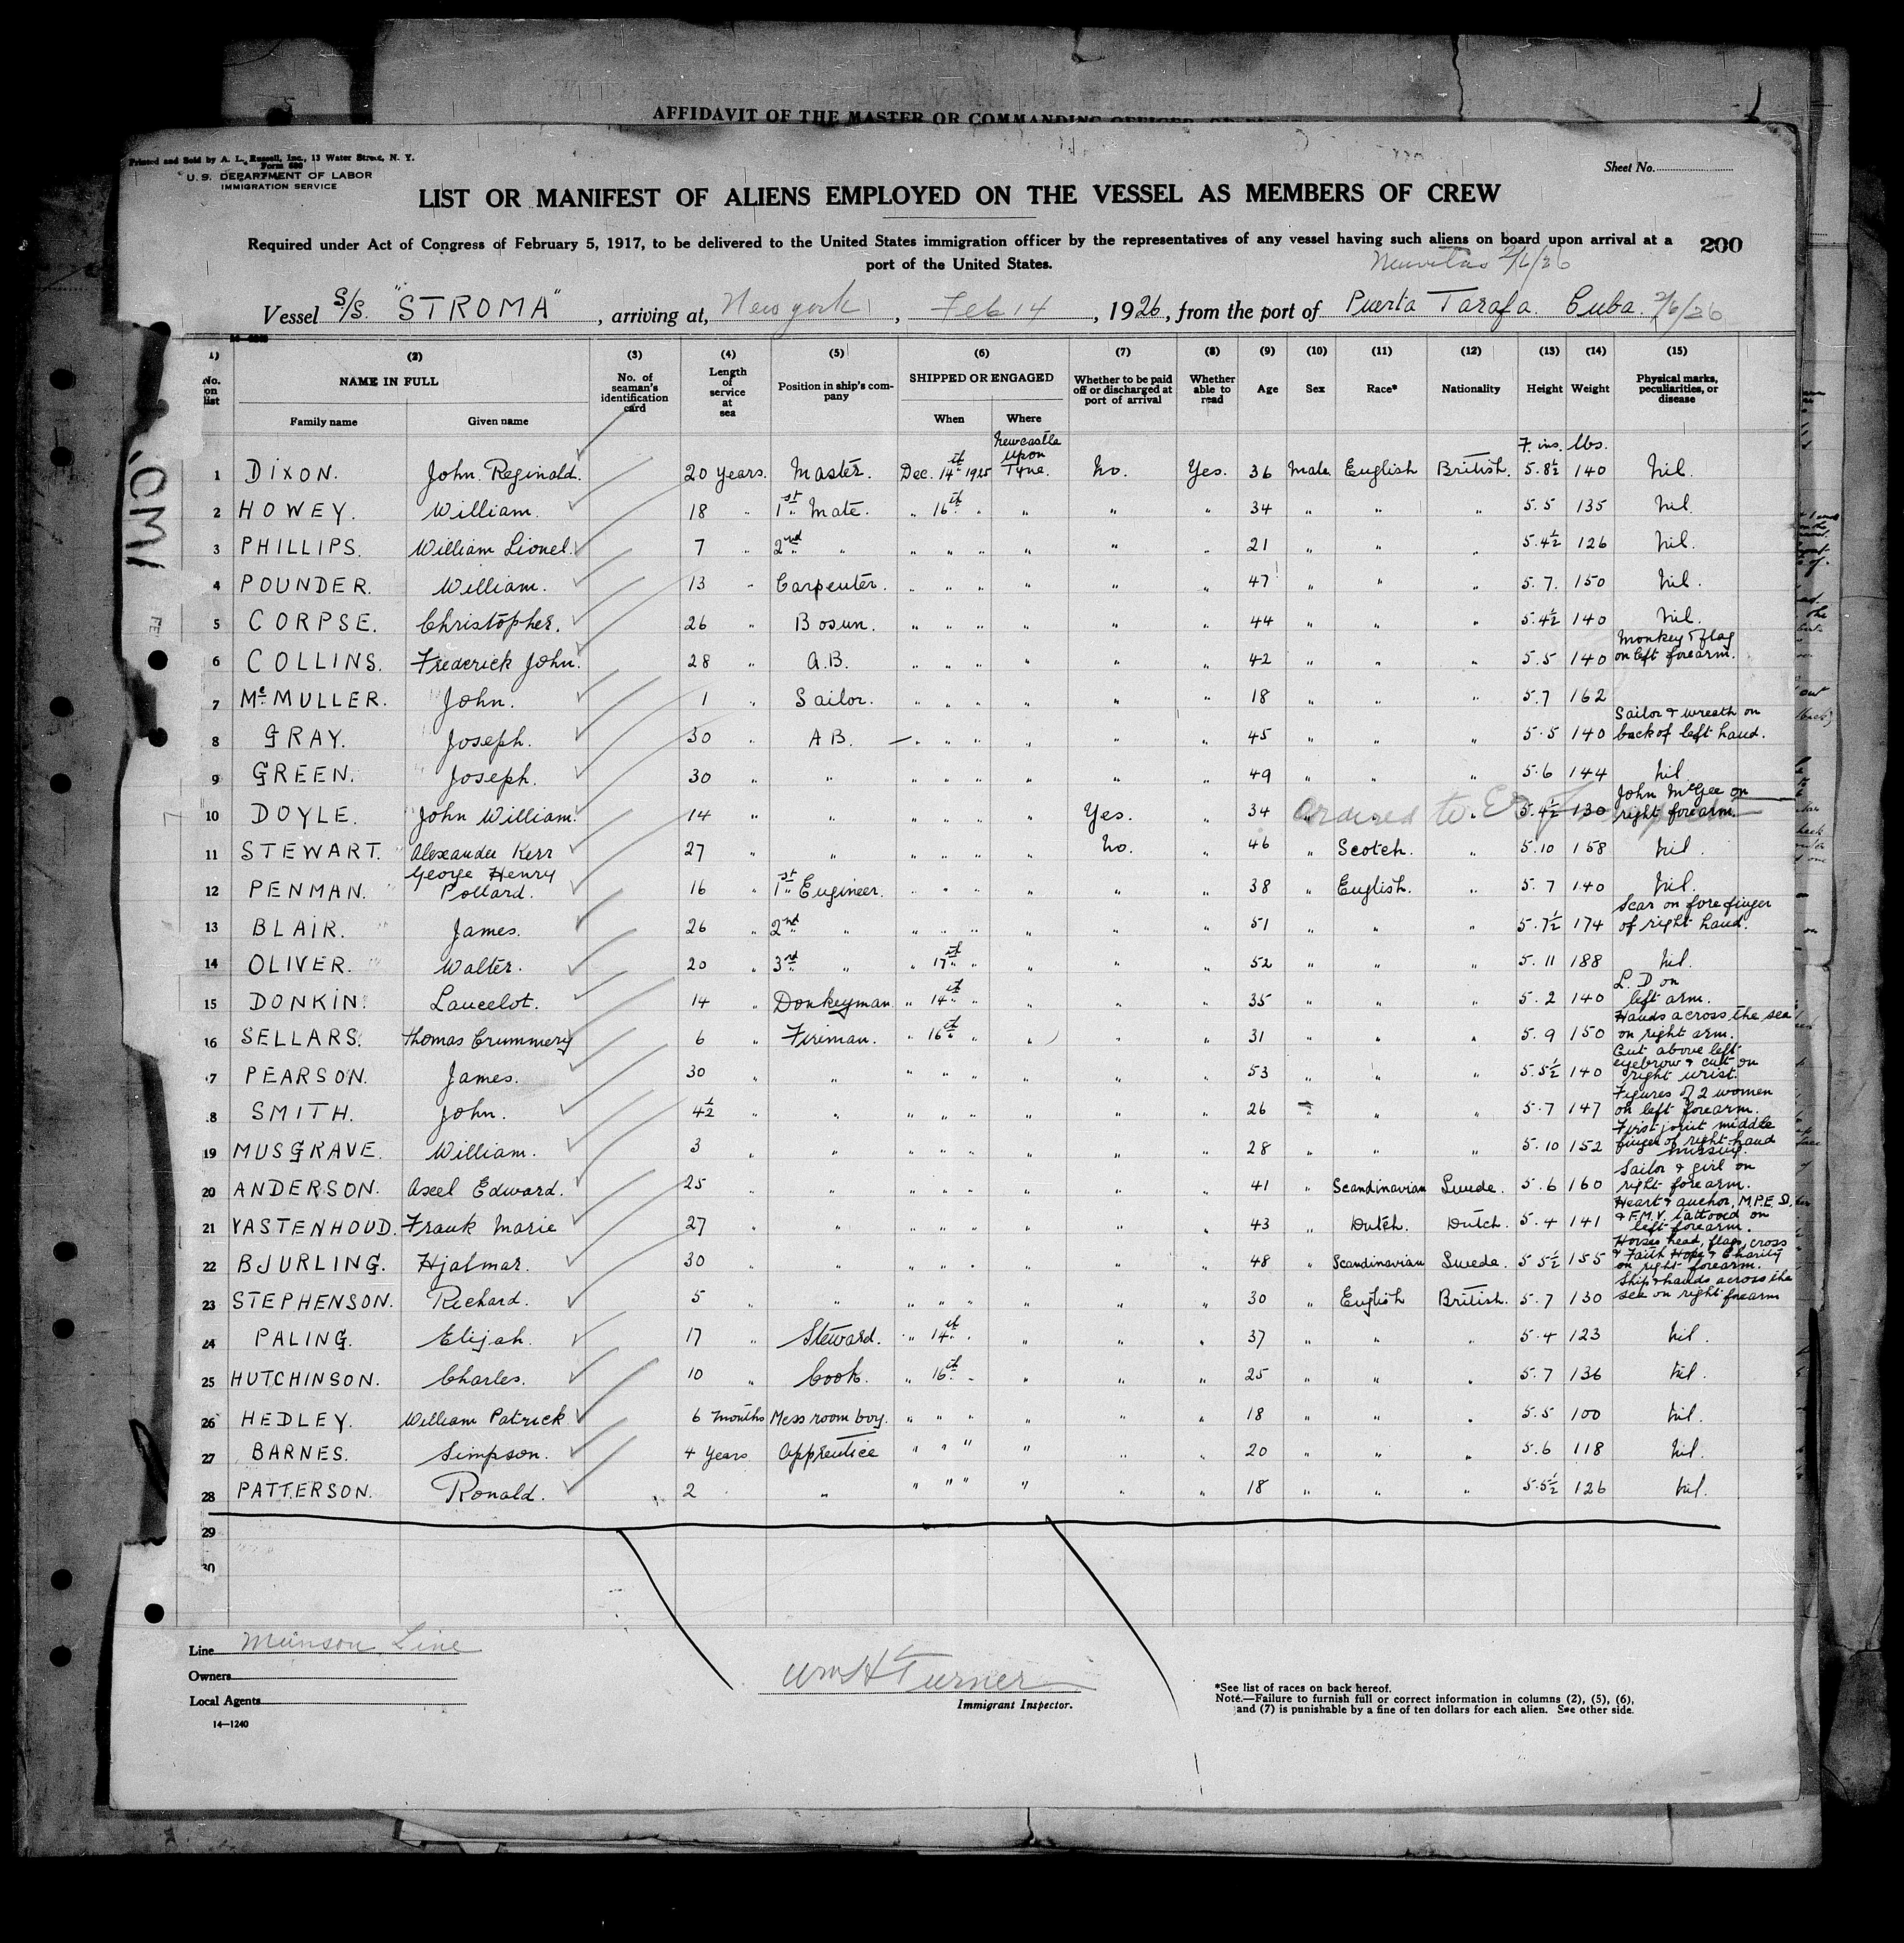 AFFIDAVIT OF THE MASTER OR COMMANDING OFFICER
Printed and Sold by A. L. Russell, Inc., 13 Water Street, N. Y.
Form 680
U. S. DEPARTMENT OF LABOR
IMMIGRATION SERVICE
Sheet No.
LIST OR MANIFEST OF ALIENS EMPLOYED ON THE VESSEL AS MEMBERS OF CREW
Required under Act of Congress of February 5, 1917, to be delivered to the United States immigration officer by the representatives of any vessel having such aliens on board upon arrival at a
port of the United States.
200
Nuevitas 2/6/26
Vessel S/S. "STROMA", arriving at, New York, Feb 14, 1926, from the port of Puerta Tarafa. Cuba. 2/6/26
(1) (2) (3) (4) (5) (6) (7) (8) (9) (10) (11) (12) (13) (14) (15)
No. on list NAME IN FULL Family name Given name No. of seaman's identification card Length of service at sea Position in ship's company SHIPPED OR ENGAGED When Where Whether to be paid off or discharged at port of arrival Whether able to read Age Sex Race* Nationality Height Weight Physical marks, peculiarities, or disease
F. ins. lbs.
1 DIXON. John Reginald. 20 years. Master. Dec. 14th 1925 Newcastle upon Tyne. No. Yes. 36 Male English British. 5.8½ 140 Nil.
2 HOWEY. William. 18 " 1st Mate. " 16th " " " " 34 " " " 5.5 135 Nil.
3 PHILLIPS. William Lionel. 7 " 2nd " " " " " " " 21 " " " 5.4½ 126 Nil.
4 POUNDER. William. 13 " Carpenter. " " " " " " 47 " " " 5.7. 150 Nil.
5 CORPSE. Christopher. 26 " Bosun. " " " " " " 44 " " " 5.4½ 140 Nil.
6 COLLINS. Frederick John. 28 " A.B. " " " " " " 42 " " " 5.5 140 Monkey & flag on left forearm.
7 McMULLER. John. 1 " Sailor. " " " " " " 18 " " " 5.7 162
8 GRAY. Joseph. 30 " AB. " " " " " " 45 " " " 5.5 140 Sailor & wreath on back of left hand.
9 GREEN. Joseph. 30 " " " " " " " " 49 " " " 5.6 144 Nil
10 DOYLE. John William. 14 " " " " " " Yes. " 34 " " " 5.4½ 130 John McGee on right forearm.
ordered to
11 STEWART. Alexander Kerr 27 " " " " " " No. " 46 " Scotch. " 5.10 158 Nil
12 PENMAN. George Henry Pollard. 16 " 1st Engineer. " " " " " " 38 " English. " 5.7 140 Nil.
13 BLAIR. James. 26 " 2nd " " " " " " " 51 " " " 5.7½ 174 Scar on fore finger of right hand.
14 OLIVER. Walter. 20 " 3rd " " 17th " " " " 52 " " " 5.11 188 Nil.
15 DONKIN. Lancelot. 14 " Donkeyman. " 14th " " " " 35 " " " 5.2 140 L. D on left arm.
16 SELLARS. Thomas Crummery 6 " Fireman. " 16th " " " " 31 " " " 5.9 150 Hands across the sea on right arm.
17 PEARSON. James. 30 " " " " " " " " 53 " " " 5.5½ 140 Cut above left eyebrow & cut on right wrist.
18 SMITH. John. 4½ " " " " " " " " 26 " " " 5.7 147 Figures of 2 women on left forearm.
19 MUSGRAVE. William. 3 " " " " " " " " 28 " " " 5.10 152 First joint middle finger of right hand missing.
20 ANDERSON. Axel Edward. 25 " " " " " " " " 41 " Scandinavian Swede. 5.6 160 Sailor & girl on right forearm.
21 VASTENHOUD. Frank Marie 27 " " " " " " " " 43 " Dutch. Dutch. 5.4 141 Heart & anchor, M.P.E.D. & F.M.V. tattooed on left forearm.
22 BJURLING. Hjalmar. 30 " " " " " " " " 48 " Scandinavian Swede. 5 5½ 155 Horses head, flags, cross & Faith Hope & Charity on right forearm.
23 STEPHENSON. Richard. 5 " " " " " " " " 30 " English British. 5.7 130 Ship & hands across the sea on right forearm
24 PALING. Elijah. 17 " Steward. " 14th " " " " 37 " " " 5.4 123 Nil.
25 HUTCHINSON. Charles. 10 " Cook. " 16th " " " " 25 " " " 5.7 136 Nil.
26 HEDLEY. William Patrick 6 months Mess room boy. " " " " " " 18 " " " 5.5 100 Nil.
27 BARNES. Simpson. 4 years Apprentice " " " " " " 20 " " " 5.6 118 Nil.
28 PATTERSON. Ronald. 2 " " " " " " " 18 " " " 5.5½ 126 Nil.
29
30
Line Munson Line
Owners
Local Agents
14—1240
Wm H Turner
Immigrant Inspector.
*See list of races on back hereof.
Note.—Failure to furnish full or correct information in columns (2), (5), (6),
and (7) is punishable by a fine of ten dollars for each alien. See other side.